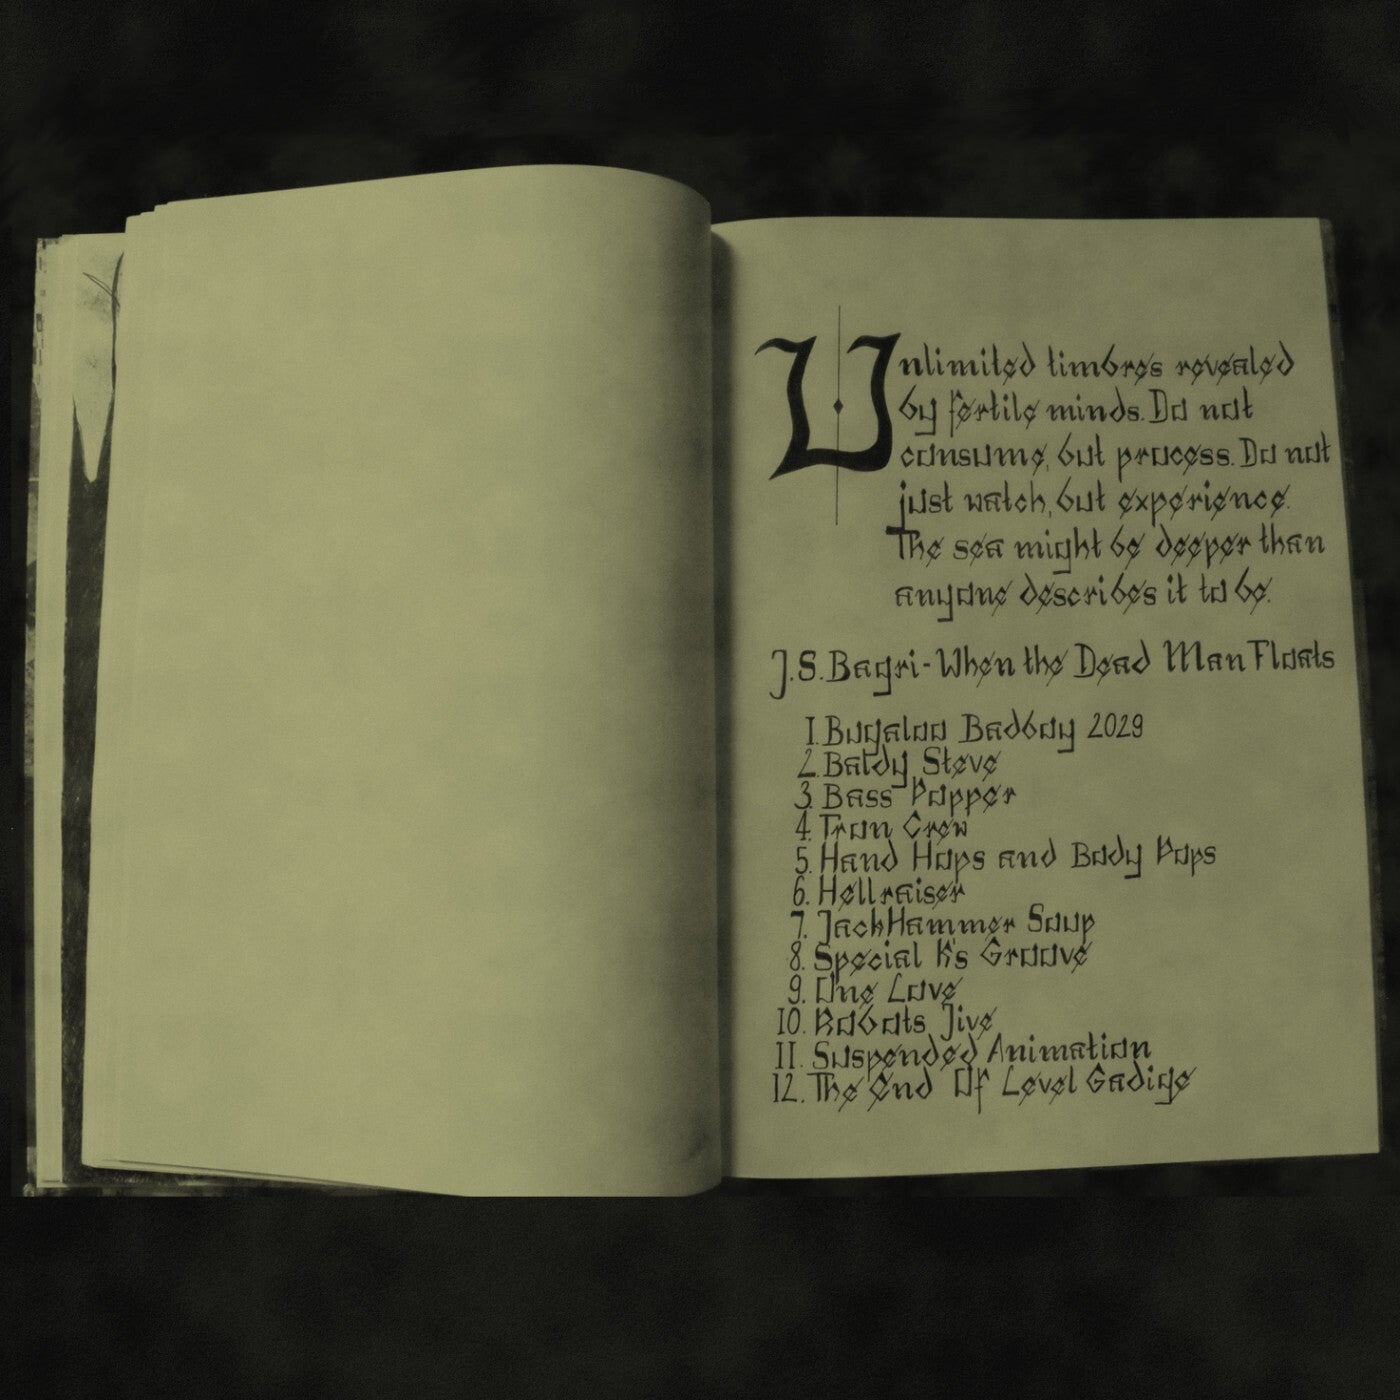 Unlimited timbres revealed
by fertile minds. Do not
consume, but process. Do not
just watch, but experience.
The sea might be deeper than
anyone describes it to be.
J.S. Bagri - When the Dead Man Floats
1. Bugaloo Badboy 2029
2. Baldy Steve
3. Bass Popper
4. Tron Crew
5. Hand Hops and Body Pops
6. Hellraiser
7. JackHammer Soup
8. Special K's Groove
9. One Love
10. Robots Jive
11. Suspended Animation
12. The End Of Level Gadige